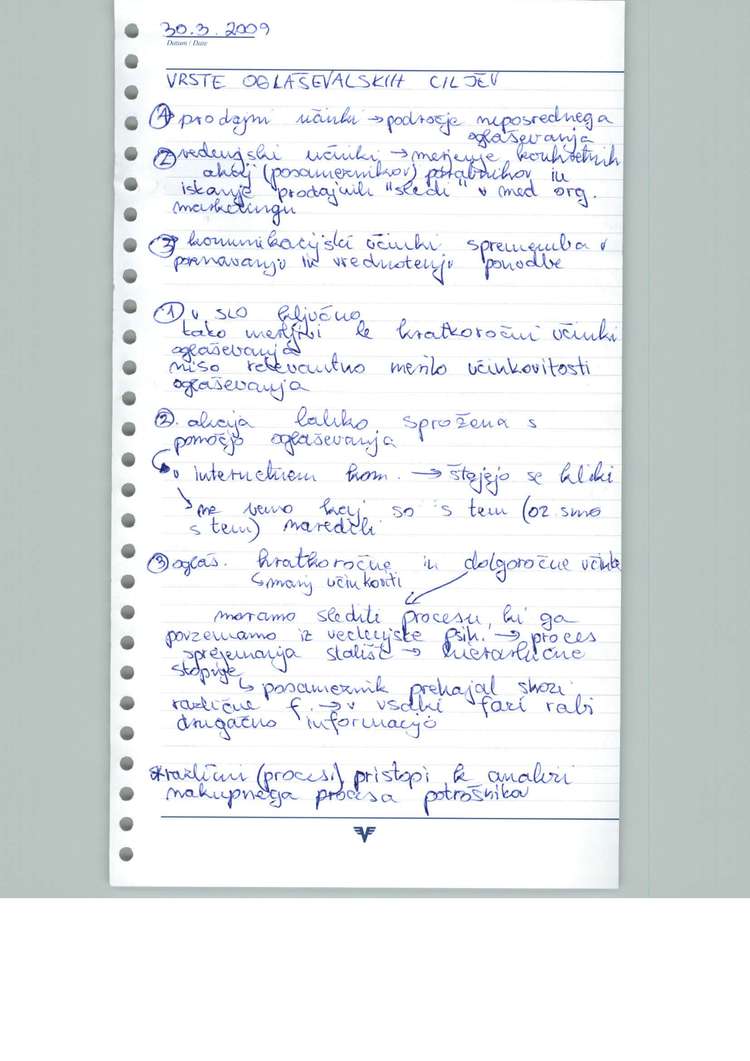 30.3.2009
Datum / Date
VRSTE OGLAŠEVALSKIH CILJEV
① prodajni učinki → področje neposrednega
oglaševanja
② vedenjski učinki → merjenje konkretnih
akcij (posameznikov) porabnikov in
iskanje prodajnih "sledi" v med org.
marketingu
③ komunikacijski učinki sprememba v
poznavanju in vrednotenju ponudbe
① v SLO ključno
tako merljivi le kratkoročni učinki
oglaševanja
niso relevantno merilo učinkovitosti
oglaševanja
②. akcija lahko sprožena s
pomočjo oglaševanja
v internetnem kom. → štejejo se kliki
ne vemo kaj so s tem (oz. smo
s tem) naredili
③ oglaš. kratkoročne in dolgoročne učinke
↳ manj učinkoviti
moramo slediti procesu, ki ga
povzemamo iz vedenjske psih. → proces
sprejemanja stališč → hierarhične
stopnje
↳ posameznik prehajal skozi
različne f. → v vsaki fazi rabi
drugačno informacijo
* različni (procesi) pristopi k analizi
nakupnega procesa potrošnika